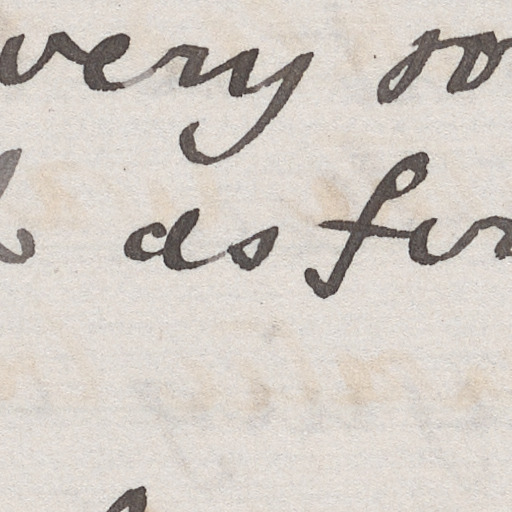 very so
as for